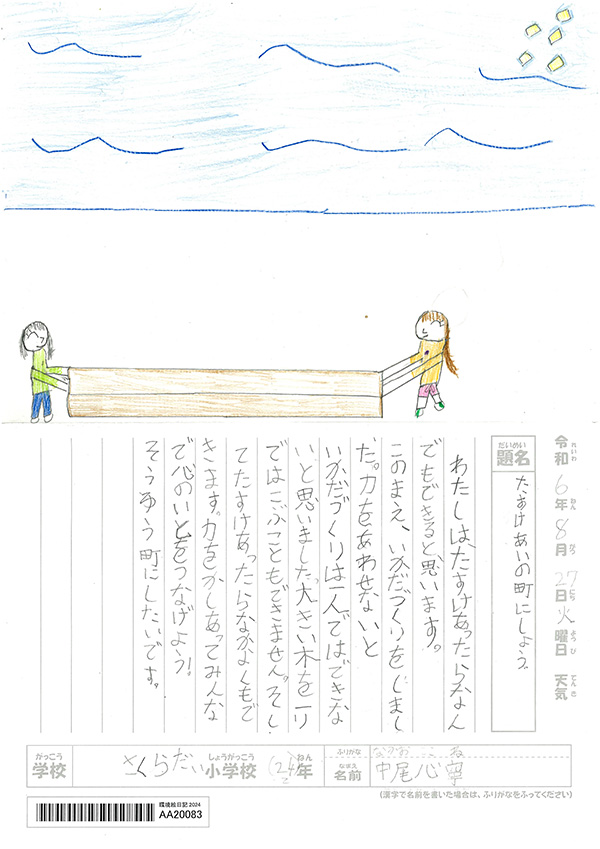 令和6年8月27日火曜日 天気
れいわ ねん がつ にち ようび てんき
だいめい
題名 たすけあいの町にしよう。
わたしはたすけあったらなん
でもできると思います。
このまえ、いかだづくりをしまし
だ。力をあわせないと
いかだづくりは一人ではできな
いと思いました。大きい木を一り
ではこぶこともできません。そし
てたすけあったらなかよくもで
きます。力をかしあってみんな
で心のいとをつなげよう!
そうゆう町にしたいです。
がっこう しょうがっこう ねん
学校 さくらだい小学校 (2)年
ふりがな なかお ここね
なまえ
名前 中尾心寧
(漢字で名前を書いた場合は、ふりがなをふってください)
環境絵日記 2024
AA20083